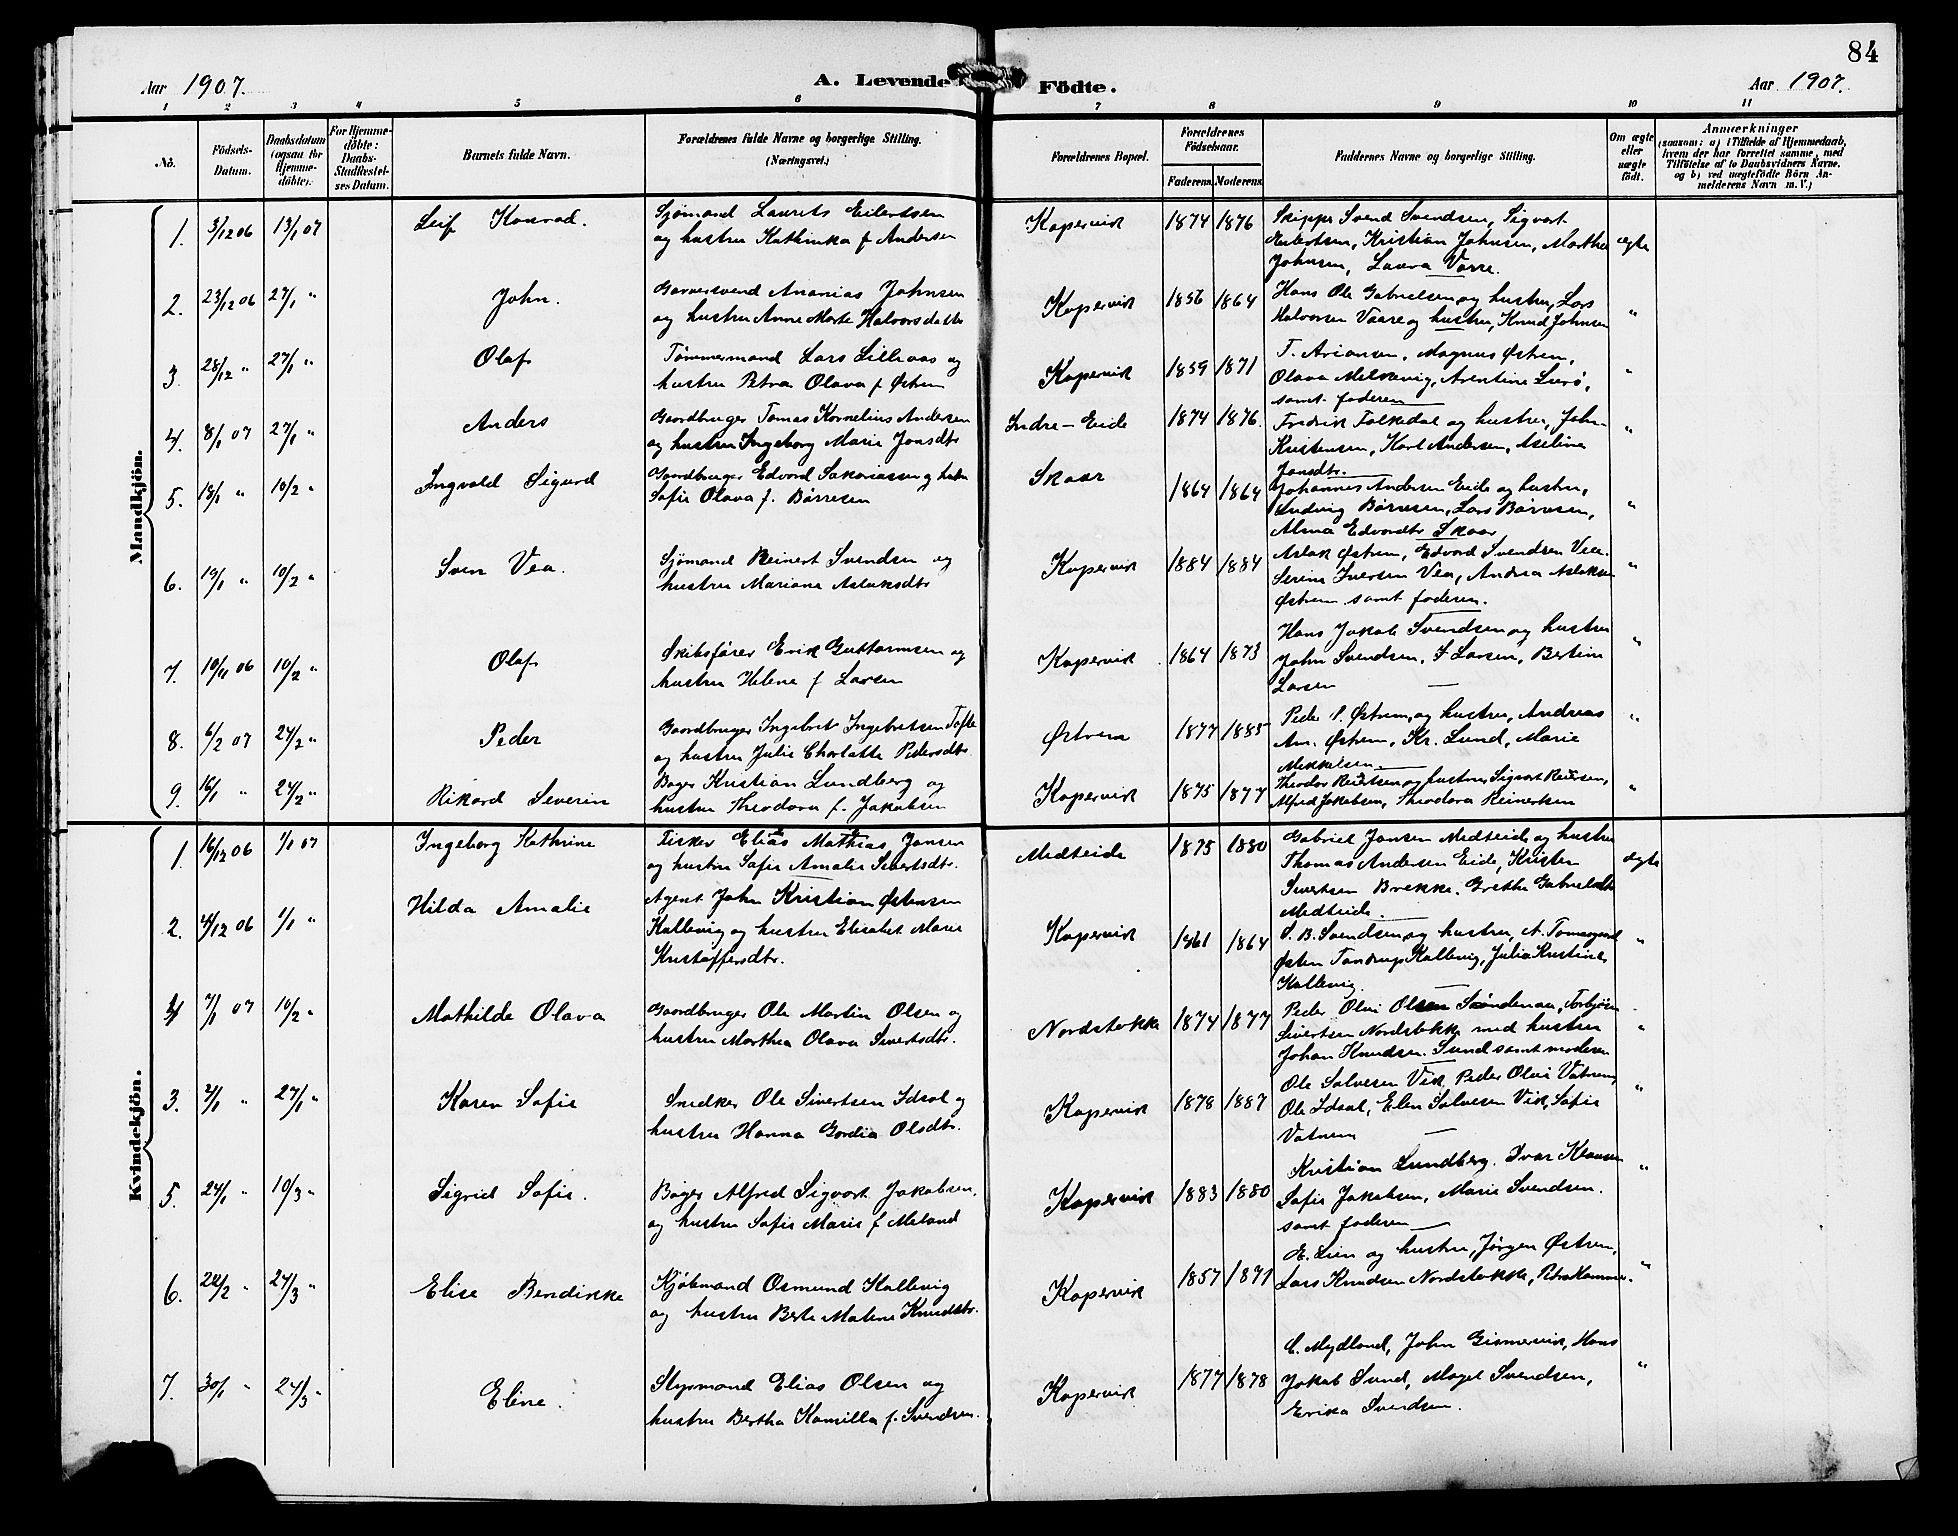 84
Aar 1907.
A. Levende
Födte.
Aar 1907.
1 2 3 4 5 6 7 8 9 10 11
No.
Födsels-
Datum.
Daabsdatum
(ogsaa for
Hjemme-
döbte).
For Hjemme-
döbte:
Daabs-
Stadfæstel-
ses Datum.
Barnets fulde Navn.
Forældrenes fulde Navne og borgerlige Stilling.
(Næringsvei.)
Forældrenes Bopæl.
Forældrenes
Födselsaar.
Faderens. Moderens.
Faddernes Navne og borgerlige Stilling.
Om ægte
eller
uægte
födt.
Anmærkninger
(saasom: a) i Tilfælde af Hjemmedaab,
hvem der har forrettet samme, med
Tilföielse af to Daabsvidners Navne,
og b) ved uægtefödte Börn An-
melderens Navn m. V.)
Mandkjön.
1. 3/12 06 13/1 07 Leif Konrad. Sjømand Laurits Eilertsen
og hustru Kathinka f Andersen
Kopervik 1874 1876 Skippr Svend Svendsen, Sigvart
Eilertsen, Kristian Johnsen, Marthe
Johnsen, Laura Varre. ægte
2. 23/12 06 27/1 " John. Garversvend Ananias Johnsen
og hustru Anne Marte Halvorsdatter
Kopervik 1856 1864 Hans Ole Gabrielsen og hustru, Lars
Halvorsen Vaare og hustru, Knud Johnsen "
3. 28/12 " 27/1 " Olaf Tømmermand Lars Lillraas og
hustru Petra Olava f Østrem
Kopervik 1859 1871 T. Ariansen, Magnus Østrem,
Olava Melkevig, Arentine Lurø,
samt faderen "
4. 8/1 07 27/1 " Anders Gaardbruger Tomas Kornelius Andersen
og hustru Ingeborg Marie Jonsdtr
Indre-Eide 1874 1876. Fredrik Falkedal og hustru, John
Kristensen, Karl Andersen, Aseline
Jonsdtr. "
5. 13/1 " 10/2 " Ingvald Sigurd Gaardbruger Edvard Sakariassen og hustru
Sofie Olava f. Børresen
Skaar 1864 1864 Johannes Andersen Eide og hustru,
Ludvig Børresen, Lars Børresen,
Alma Edvardtr Skaar "
6. 19/1 " 10/2 " Sven Vea. Sjømand Reinert Svendsen og
hustru Mariane Aslaksdtr
Kopervik 1884 1884 Aslak Østrem, Edvard Svendsen Vea.
Serine Iversen Vea, Andrea Aslaksen
Østrem samt faderen. "
7. 10/11 06 10/2 " Olaf Skibsfører Erik Guttormsen og
hustru Helene f Larsen
Kopervik 1864 1873 Hans Jakob Svendsen og hustru
John Svendsen, S Larsen, Bertine
Larsen "
8. 6/2 07 24/2 " Peder Gaardbruger Ingebret Ingebretsen Tofte
og hustru Julie Charlotte Pedersdtr
Østrem 1877 1885 Peder P. Østrem og hustru, Andreas
An. Østrem, Kr. Lund, Marie
Mikkelsen. "
9. 16/1 " 24/2 " Rikard Severin Bager Kristian Lundberg og
hustru Theodora f. Jakobsen
Kopervik 1875 1877 Theodor Reiertsen og hustru Sigvart Reiersen,
Alfred Jakobsen, Theodora Reinertsen "
Kvindekjön.
1. 16/12 06 1/1 07 Ingeborg Kathrine Fisker Elias Mathias Jansen
og hustru Sofie Amalie Sivertsdtr.
Medteide 1875 1880 Gabriel Jansen Medteide og hustru
Thomas Andersen Eide, Kristen
Sivertsen Brekke. Grethe Gabrielsdtr
Medteide. ægte
2. 4/12 06 1/1 " Hilda Amalie Agent John Kristian Østensen
Kallevig og hustru Elisabet Marie
Kristoffersdtr.
Kopervik 1861 1864 S. B. Svendsen og hustru, A. Tomasgaard
Østen Tandrup Kallevig, Julia Kristine
Kallevig. "
4 7/1 07 10/2 " Mathilde Olava Gaardbruger Ole Martin Olsen og
hustru Marthea Olava Sivertsdtr.
Nordstokke 1874 1877 Peder Olai Olsen Søndenaa, Torbjørn
Sivertsen Nordstokke med hustru
Johan Knudsen. Sund samt moderen "
3. 2/1 " 27/1 " Karen Sofie Snedker Ole Sivertsen Idsal og
hustru Hanna Gordia Olsdtr.
Kopervik 1878 1887 Ole Salvesen Vik, Peder Olai Vatnem,
Ole Idsal, Elen Salvesen Vik, Sofie
Vatnem "
5. 24/1 " 10/3 " Sigrid Sofie. Bager Alfred Sigvart Jakobsen,
og hustru Sofie Marie f Meland
Kopervik 1883 1880 Kristian Lundberg. Ivar Klausen
Sofie Jakobsen, Marie Svendsen.
samt faderen "
6. 22/2 " 24/3 " Elise Bendikke Kjøbmand Osmund Hallevig
og hustru Berte Malene Knudsdtr.
Kopervik 1857 1871 E. Lien og hustru, Jørgen Østrem,
Lars Knudsen Nordstokke, Petra Hammer. "
7. 30/1 " 24/3 " Eline. Styrmand Elias Olsen og
hustru Bertha Kamilla f. Svendsen.
Kopervik 1877 1878 C. Mydland, John Gismervik, Hans
Jakob Sund, Maget Svendsen,
Erika Svendsen. "